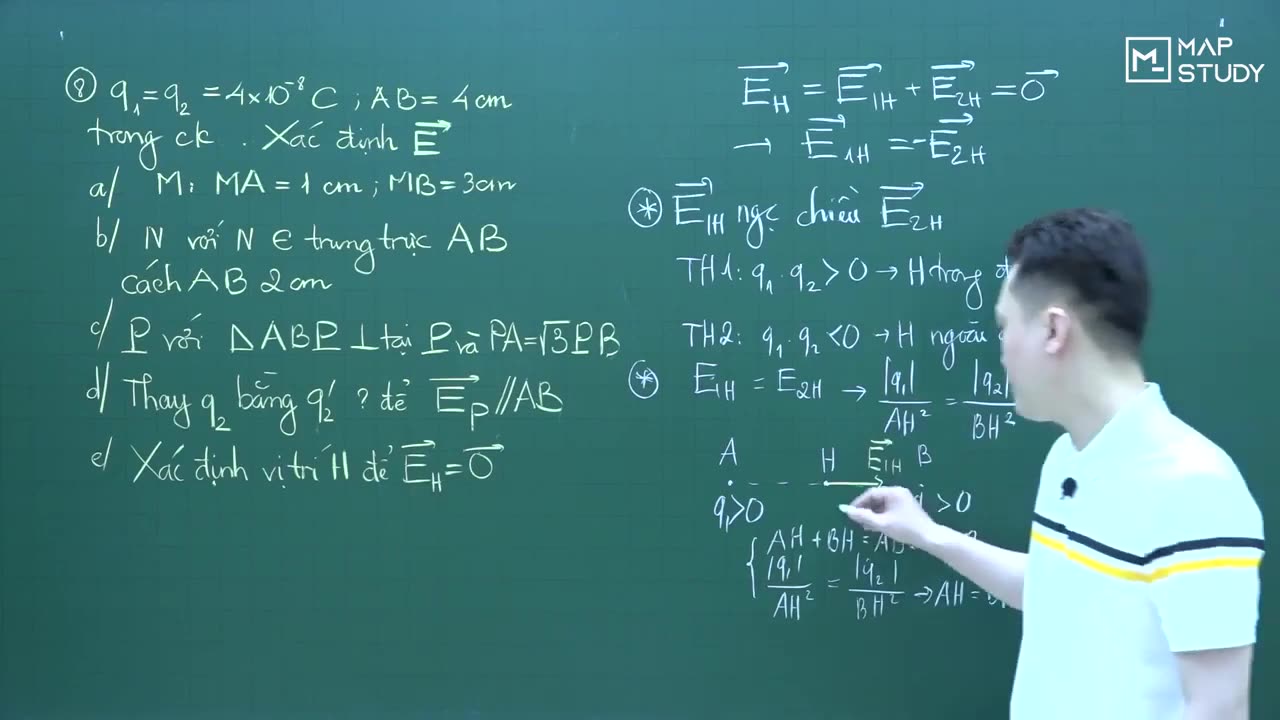 MAP
STUDY
⑧ q₁ = q₂ = 4×10⁻⁸ C ; AB = 4 cm
trong ck . Xác định E⃗
a/ M: MA = 1 cm ; MB = 3cm
b/ N với N ∈ trung trực AB
cách AB 2 cm
c/ P với ΔABP ⊥ tại P và PA = √3 PB
d/ Thay q₂ bằng q₂' ? để E⃗_P // AB
e/ Xác định vị trí H để E⃗_H = 0⃗
E⃗_H = E⃗_1H + E⃗_2H = 0⃗
→ E⃗_1H = -E⃗_2H
⊛ E⃗_1H ngc chiều E⃗_2H
TH1: q₁ . q₂ > 0 → H trong
TH2: q₁ . q₂ < 0 → H ngoài
⊛ E_1H = E_2H → |q₁| / AH² = |q₂| / BH²
A H E⃗_1H B
q₁ > 0 > 0
{ AH + BH = AB
|q₁| / AH² = |q₂| / BH² → AH =